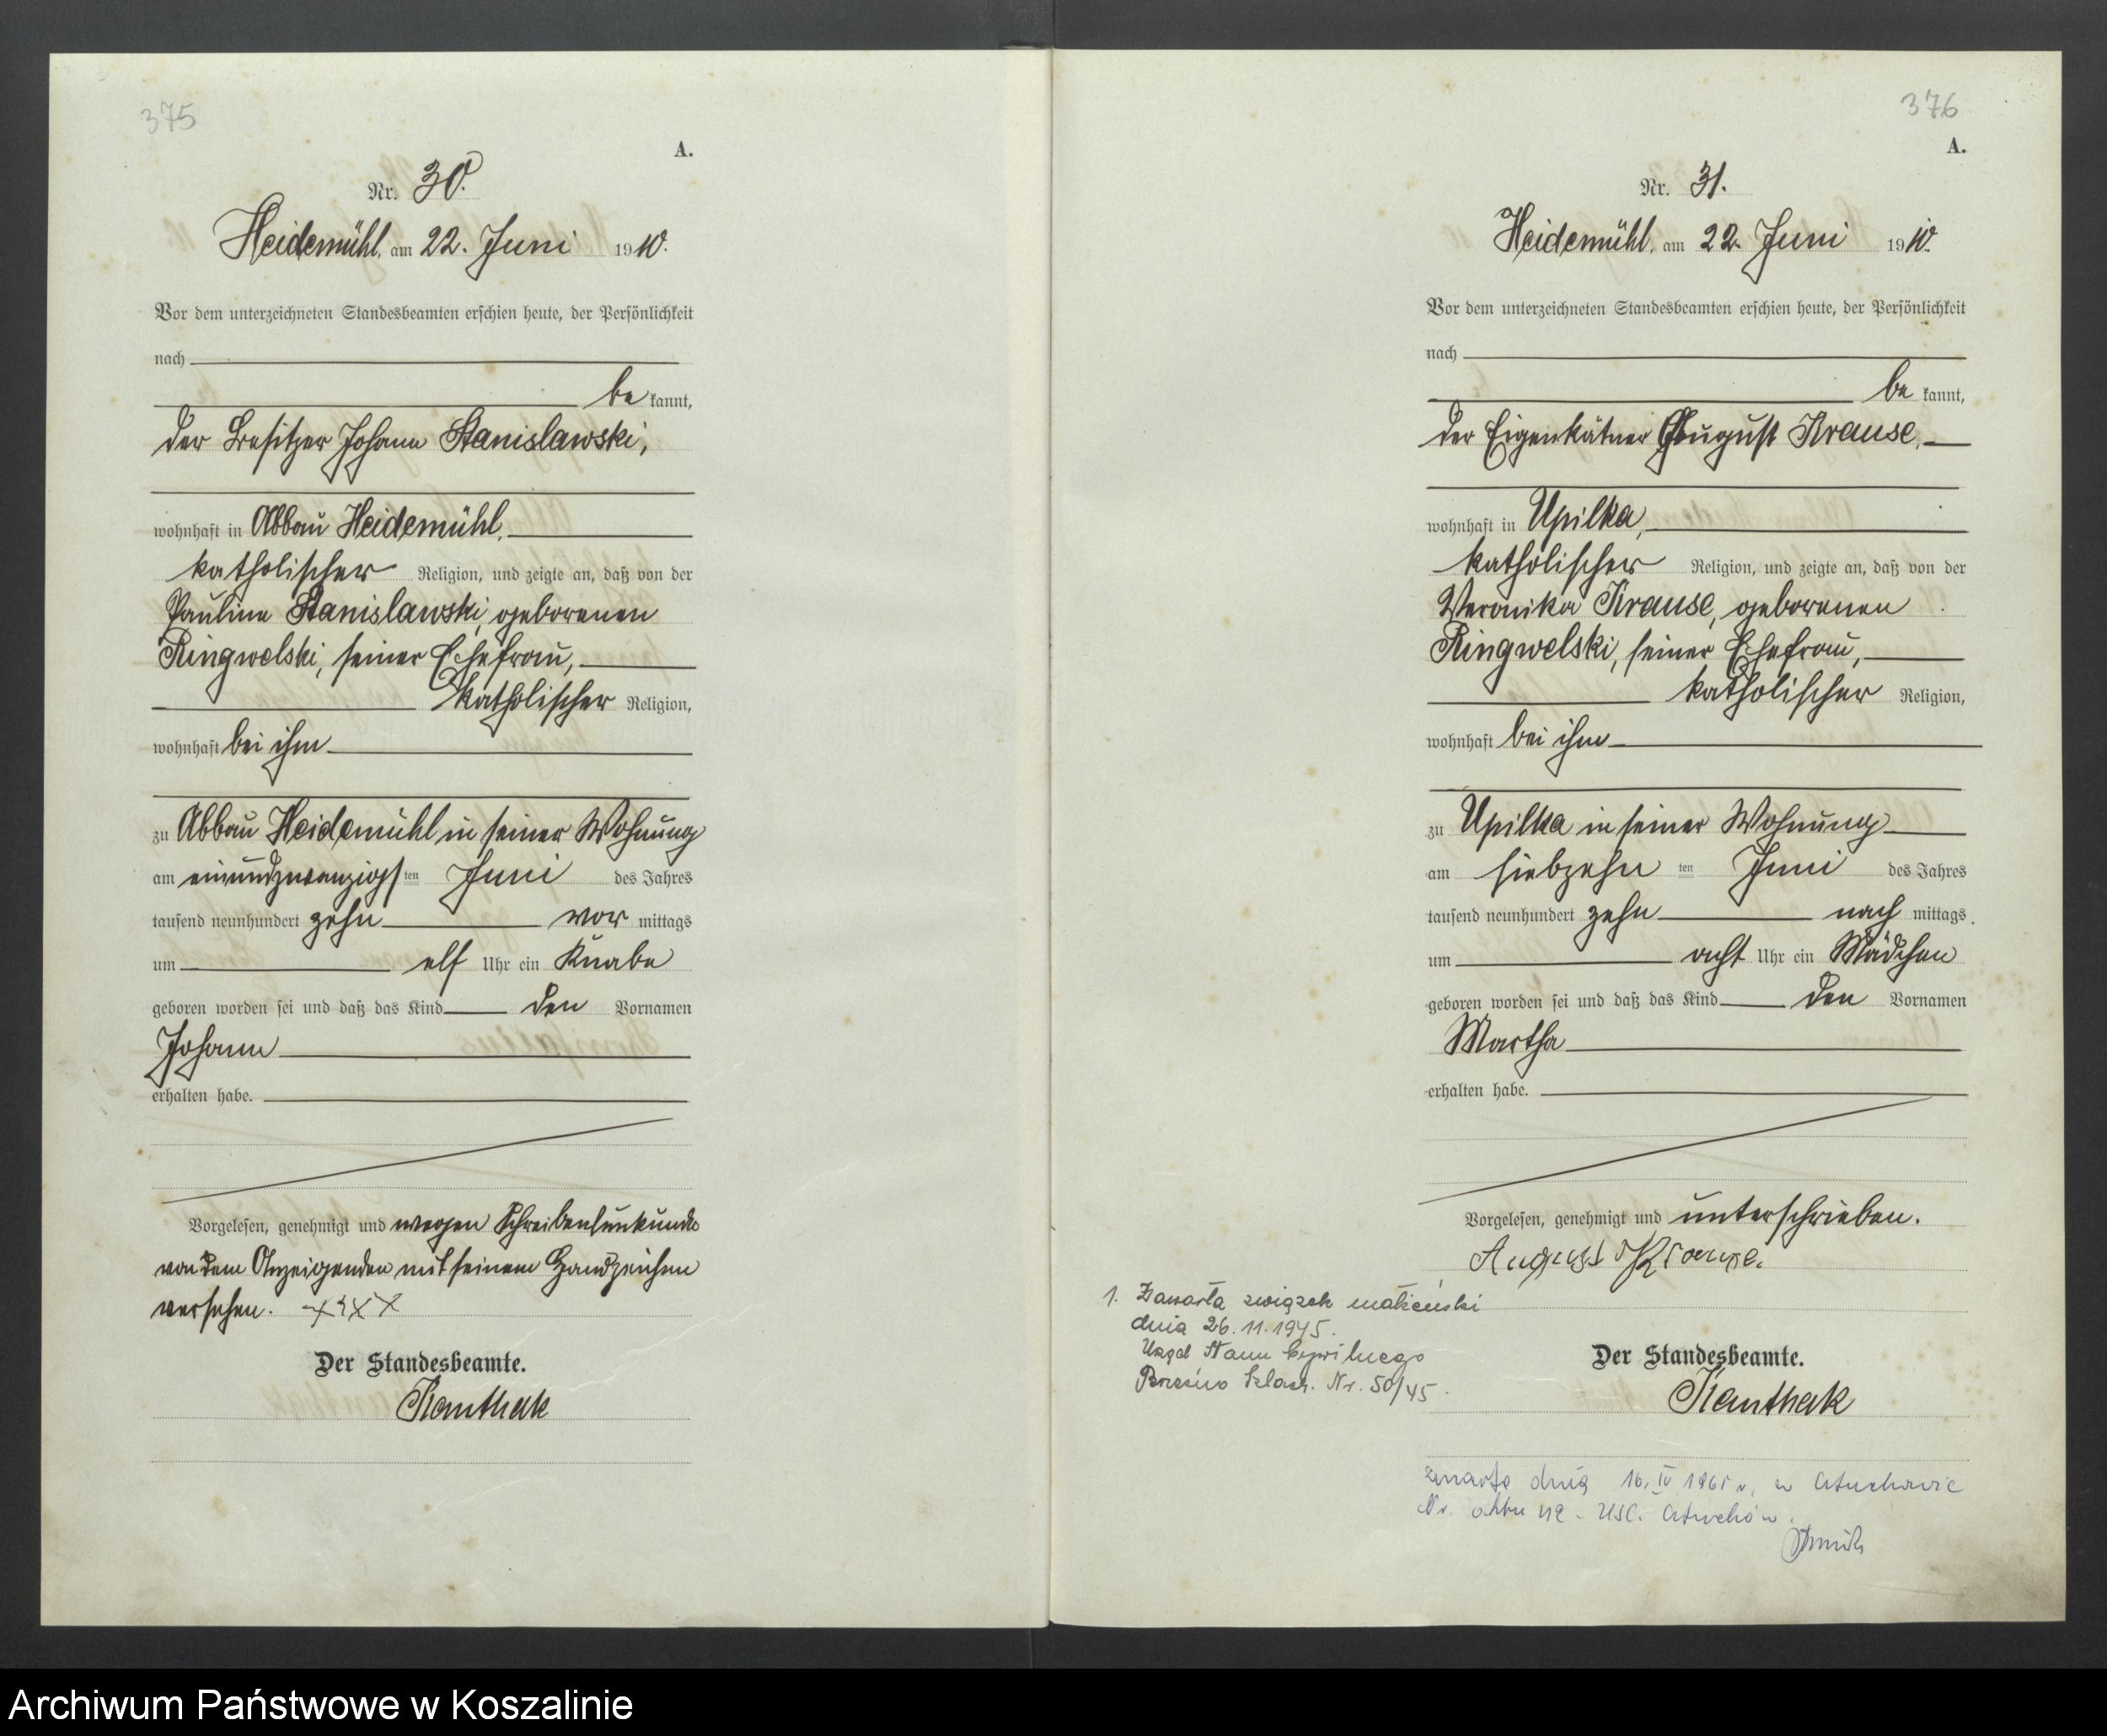 375
A.
Nr. 30.
Heidemühl, am 22. Juni 1910.
Vor dem unterzeichneten Standesbeamten erschien heute, der Persönlichkeit
nach
bekannt,
der Besitzer Johann Stanislawski,
wohnhaft in Abbau Heidemühl,
katholischer Religion, und zeigte an, daß von der
Pauline Stanislawski, geborenen
Ringwelski, seiner Ehefrau,
katholischer Religion,
wohnhaft bei ihm
zu Abbau Heidemühl in seiner Wohnung
am einundzwanzigsten Juni des Jahres
tausend neunhundert zehn vormittags
um elf Uhr ein Knabe
geboren worden sei und daß das Kind den Vornamen
Johann
erhalten habe.
Vorgelesen, genehmigt und wegen Schreibensunkunde
von dem Anzeigenden mit seinem Handzeichen
versehen. +++
Der Standesbeamte.
Kanthak
376
A.
Nr. 31.
Heidemühl, am 22. Juni 1910.
Vor dem unterzeichneten Standesbeamten erschien heute, der Persönlichkeit
nach
bekannt,
der Eigenkätner August Krause,
wohnhaft in Upilka,
katholischer Religion, und zeigte an, daß von der
Veronika Krause, geborenen
Ringwelski, seiner Ehefrau,
katholischer Religion,
wohnhaft bei ihm
zu Upilka in seiner Wohnung
am siebzehnten Juni des Jahres
tausend neunhundert zehn nachmittags
um acht Uhr ein Mädchen
geboren worden sei und daß das Kind den Vornamen
Martha
erhalten habe.
Vorgelesen, genehmigt und unterschrieben.
August Krause.
1. Zawarła związek małżeński
dnia 26.11.1945.
Urząd Stanu Cywilnego
Brzeźno Szlach. Nr. 50/45.
Der Standesbeamte.
Kanthak
zmarła dnia 16.IV 1965 r. w
Nr. aktu 42 - USC.
Archiwum Państwowe w Koszalinie